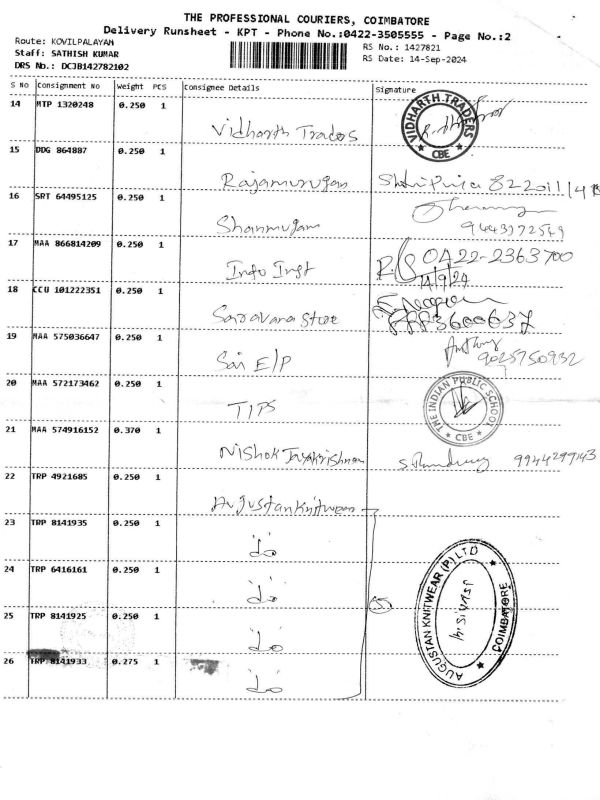 THE PROFESSIONAL COURIERS, COIMBATORE
Delivery Runsheet - KPT - Phone No.:0422-3505555 - Page No.:2
Route: KOVILPALAYAM
RS No.: 1427821
Staff: SATHISH KUMAR
RS Date: 14-Sep-2024
DRS No.: DCJB142782102
S No Consignment No Weight PCS Consignee Details Signature
14 MTP 1320248 0.250 1
Vidharth Traders
VIDHARTH TRADERS
CBE
15 DDG 864887 0.250 1
Rajamurugan
16 SRT 64495125 0.250 1
Shanmugam
17 MAA 866814209 0.250 1
Info Inst 0422-2363700
14/9/24
18 CCU 101222351 0.250 1
Saravana Store
19 MAA 575036647 0.250 1
Sai E/P
9025750932
20 MAA 572173462 0.250 1
TIPS
THE INDIAN PUBLIC SCHOOL
CBE
21 MAA 574916152 0.370 1
Nishok Jayakrishnan
22 TRP 4921685 0.250 1
Augustan Knitwear
23 TRP 8141935 0.250 1
do
24 TRP 6416161 0.250 1
do
(5)
AUGUSTAN KNITWEAR (P) LTD
COIMBATORE
25 TRP 8141925 0.250 1
do
26 TRP 8141933 0.275 1
do